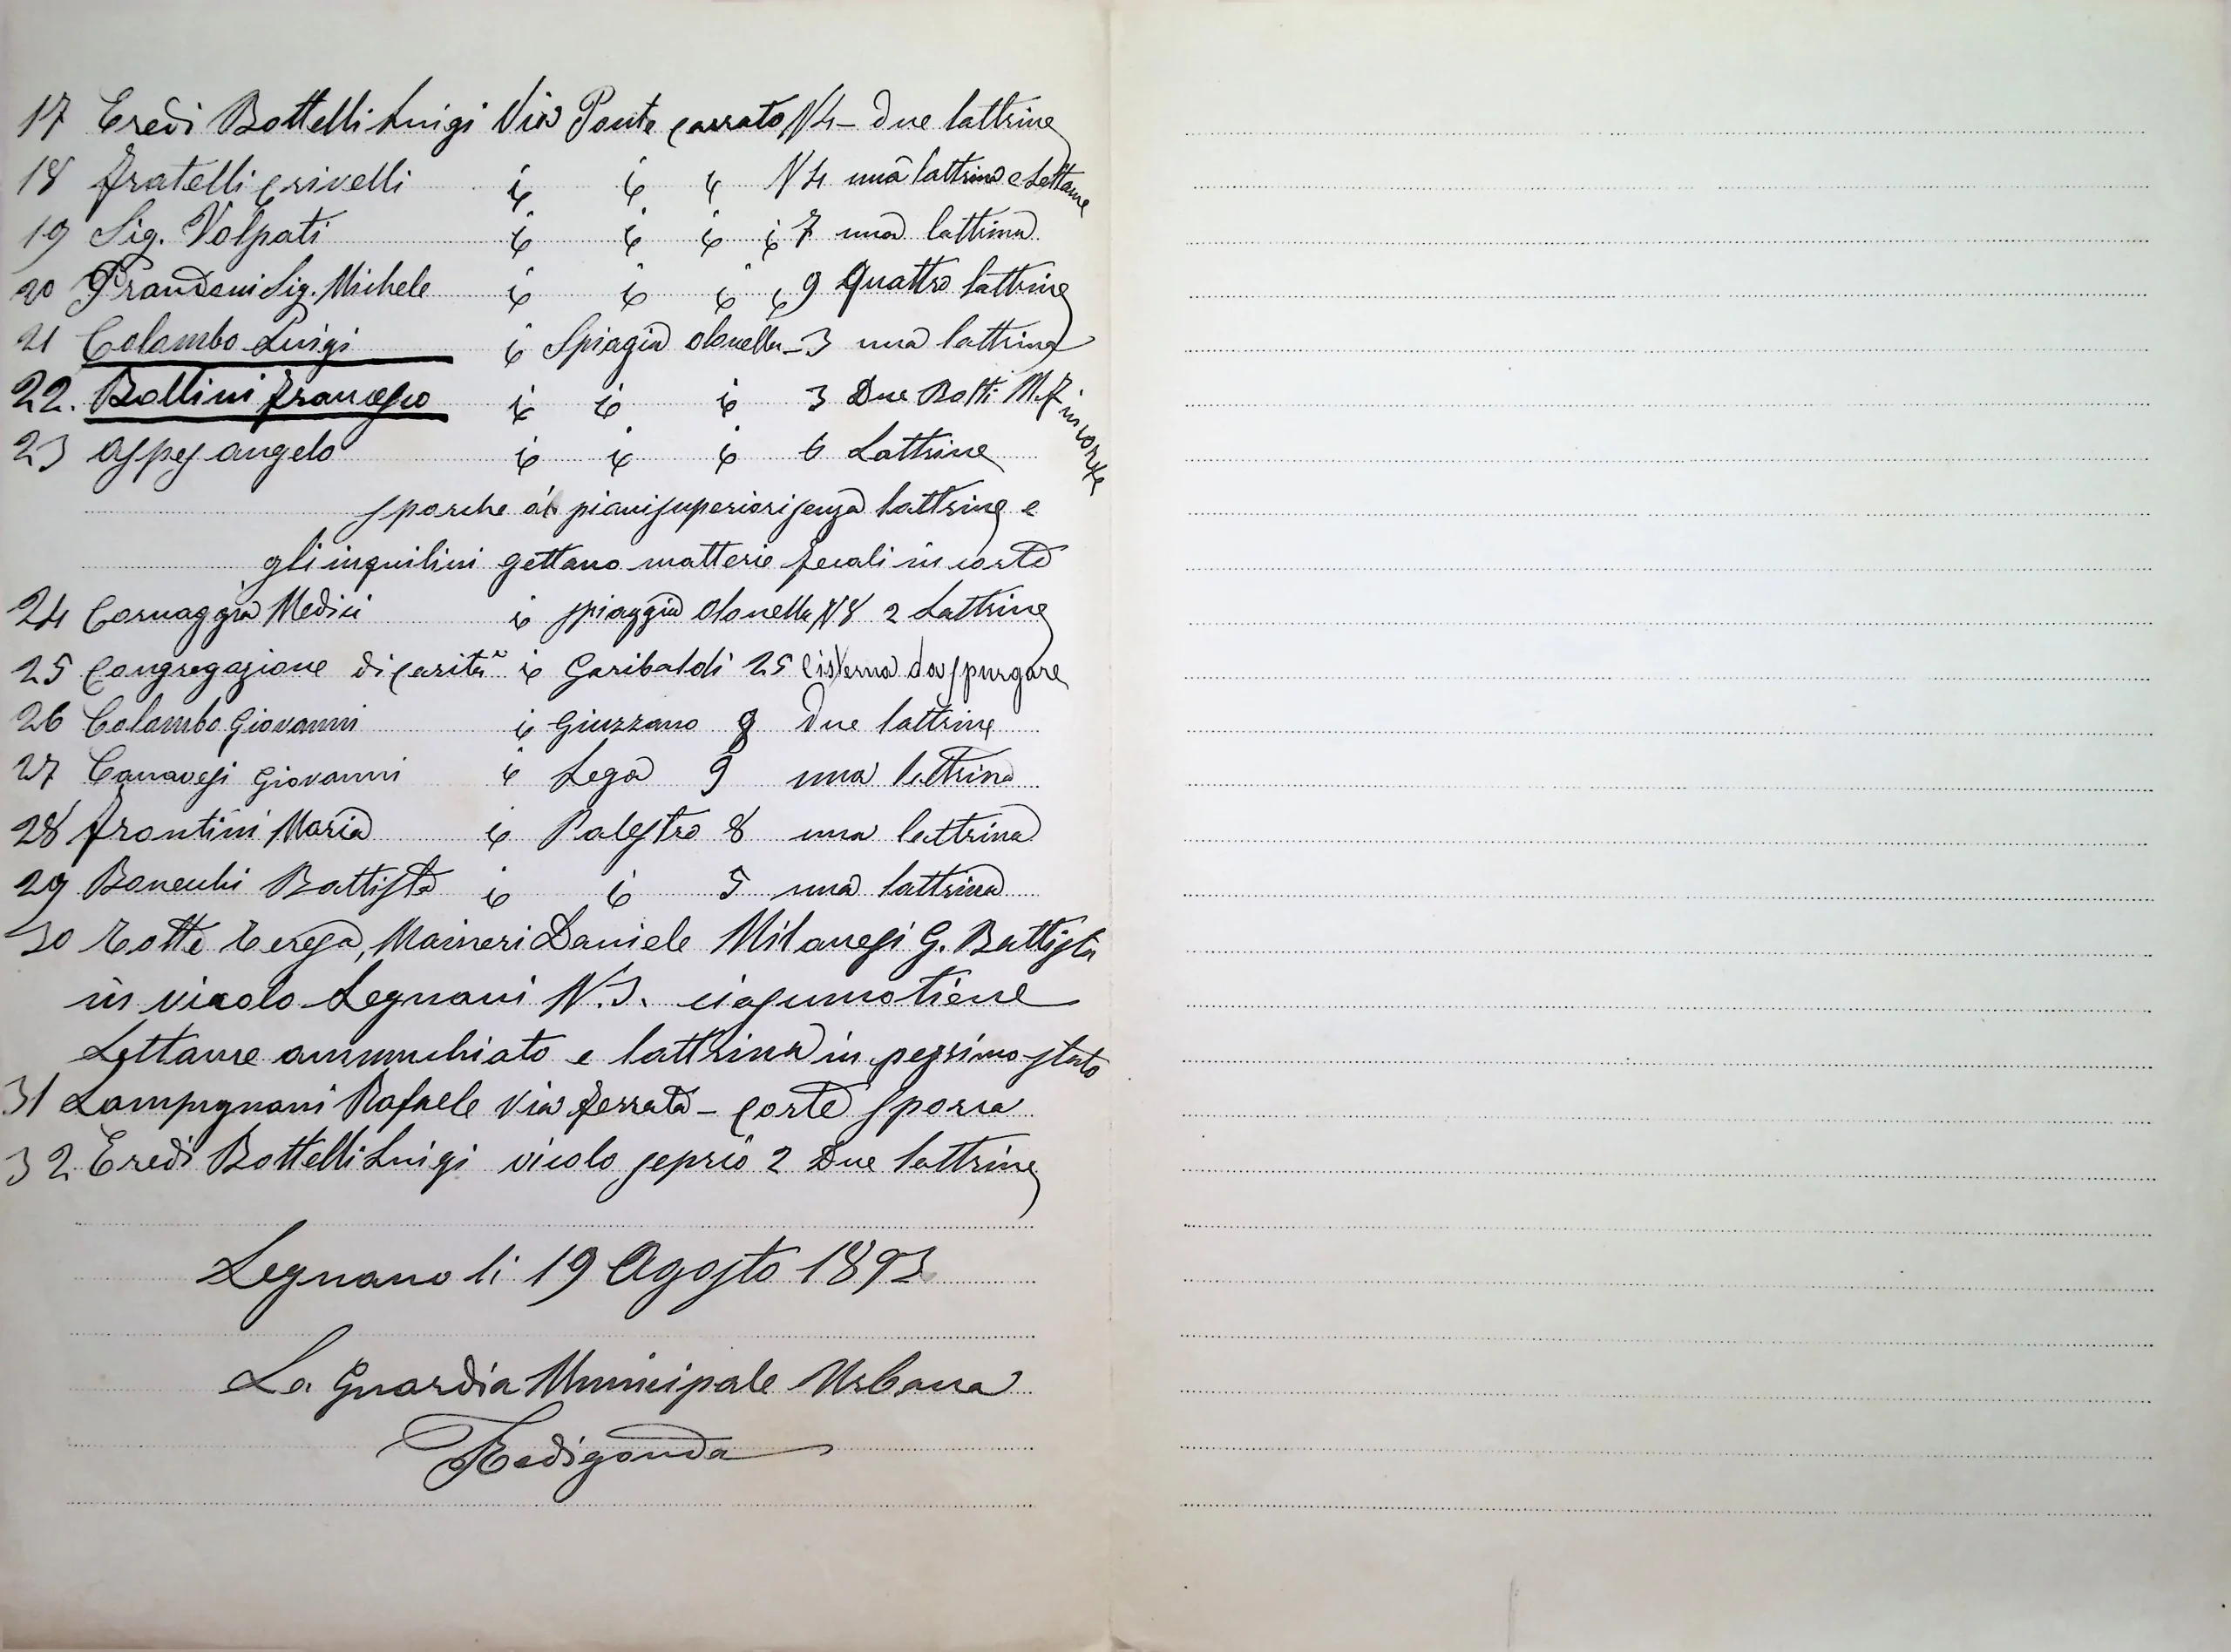 17 Eredi Bottelli Luigi Via Ponte carrato N4 – Due lattrine
18 Fratelli Crivelli i i i N4 una lattrina e Lettame
19 Sig. Volpati i i i i 7 una lattrina
20 Prandoni Sig. Michele i i i i 9 Quattro lattrine
21 Colombo Luigi i Spiagia Olonella – 3 una lattrina
22. Bollini Francesco i i i 3 Due Botti M.F. in corte
23 Aspes Angelo i i i 6 Lattrine
sporche ai piani superiori senza lattrine e
gli inquilini gettano matterie fecali in corte
24 Cornaggia Medici i spiaggia Olonella N8 2 Lattrine
25 Congregazione di carità i Garibaldi 25 Cisterna da spurgare
26 Colombo Giovanni i Giuzzano 8 Due lattrine
27 Canavesi Giovanni i Lega 9 una lattrina
28 Frontini Maria i Palestro 8 una lattrina
29 Bonecchi Battista i i 5 una lattrina
30 Rotta Teresa, Maineri Daniele Milanesi G. Battista
in vicolo Legnani N. 3. ciascuno tiene
Lettame ammuchiato e lattrina in pessimo stato
31 Lampugnani Rafaele via ferrata – corte sporca
32 Eredi Bottelli Luigi vicolo seprio 2 Due lattrine
Legnano li 19 Agosto 1893
La Guardia Municipale Urbana